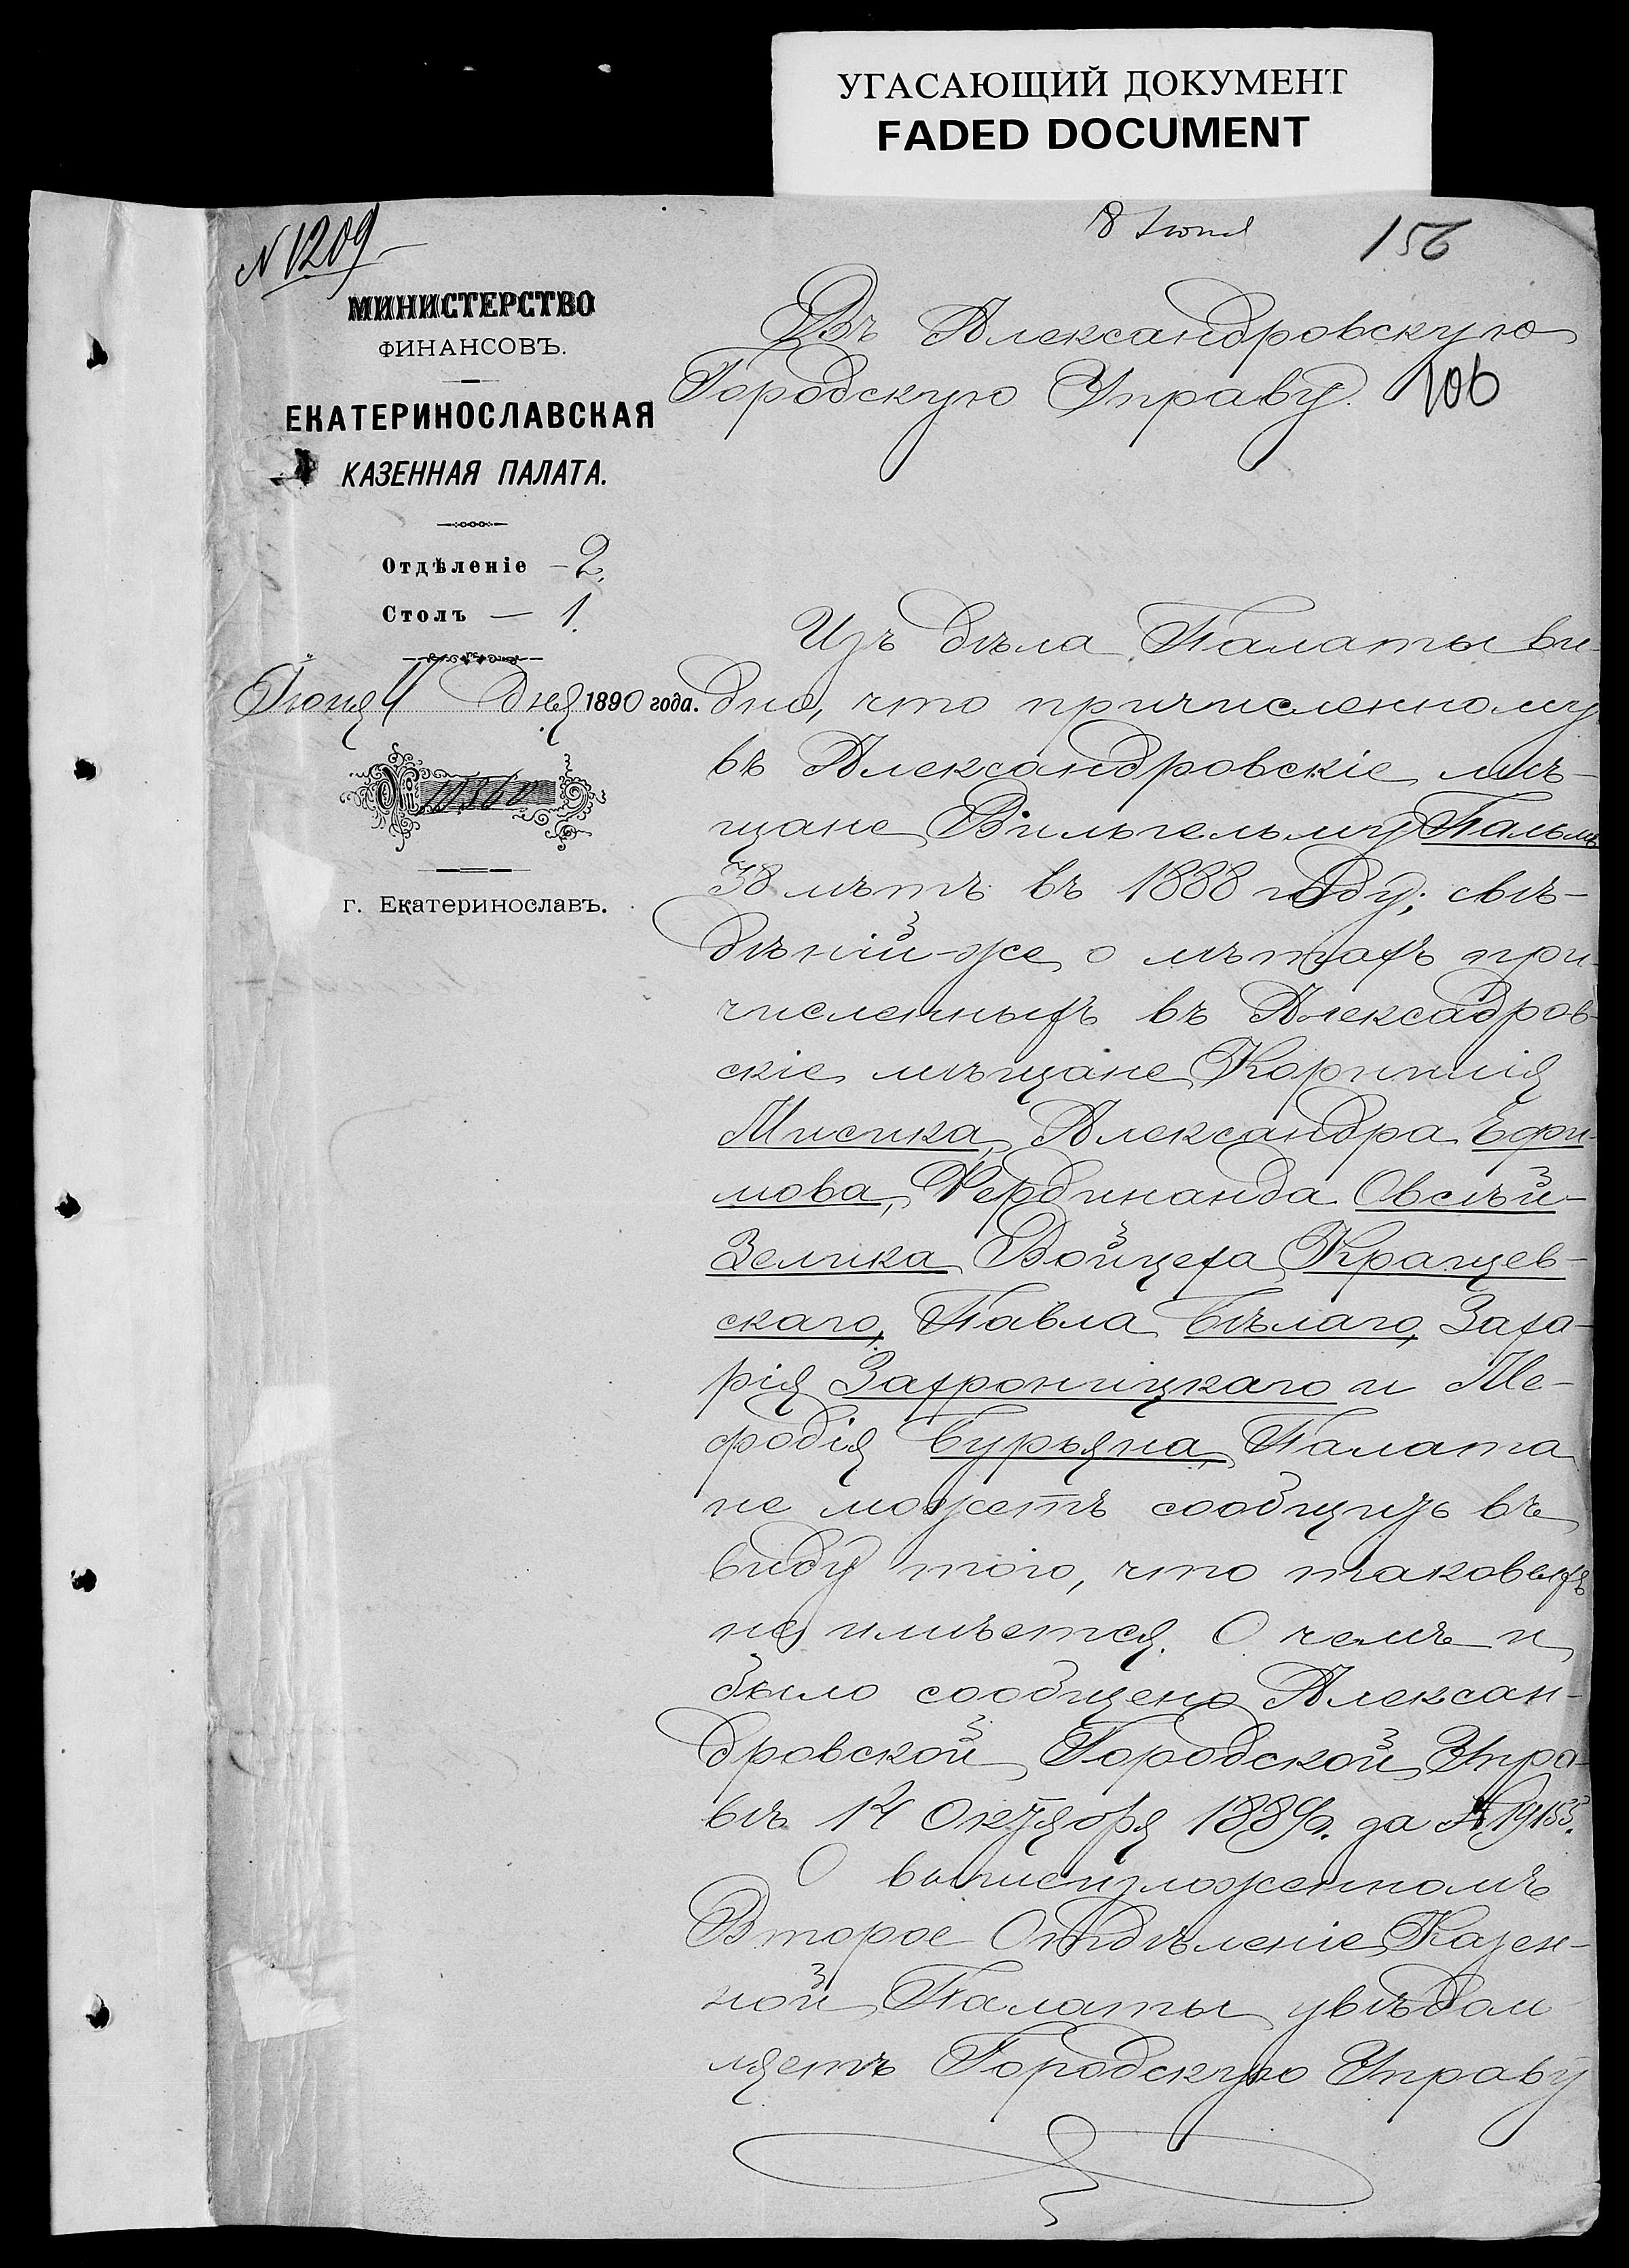 УГАСАЮЩИЙ ДОКУМЕНТ
FADED DOCUMENT
8 Іюня
156
N 1209
МИНИСТЕРСТВО
ФИНАНСОВЪ.
ЕКАТЕРИНОСЛАВСКАЯ
КАЗЕННАЯ ПАЛАТА.
Отдѣленіе – 2.
Столъ — 1.
Іюня 4 дня 1890 года.
№ 11360
г. Екатеринославъ.
Въ Александровскую
Городскую Управу.
106
Изъ дѣла Палаты ви-
дно, что причисленному
въ Александровскіе мѣ-
щане Вильгельму Пальмъ
38 лѣтъ въ 1888 году; свѣ-
дѣній-же о лѣтахъ при-
численныхъ въ Алексадров-
скіе мѣщане Корнилія
Мисика, Александра Ефи-
мова, Фердинанда Овсѣй-
Зелика Войцеха Кращев-
скаго, Павла Бѣлаго, Заха-
рія Захроницкаго и Ме-
фодія Бурьяна, Палата
не можетъ сообщить въ
виду того, что таковыхъ
не имѣется. О чемъ и
было сообщено Алексан-
дровской Городской Упра-
вѣ 14 Октября 1889 г. за № 19155.
О вышеизложенномъ
Второе Отдѣленіе Казен-
ной Палаты увѣдом-
ляетъ Городскую Управу